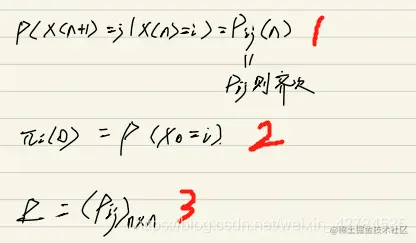 P(X(n+1)=j|X(n)=i)=Pij(n) 1
=
Pij则齐次
πi(0) = P(X0=i). 2
P = (Pij)n×n 3
https://blog.csdn.net/weixin_42724525
@稀土掘金技术社区